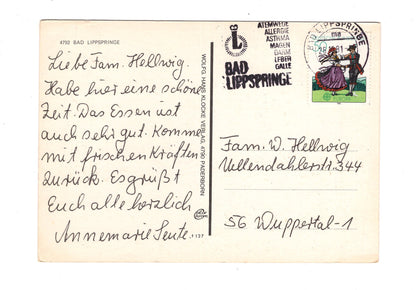 4792 BAD LIPPSPRINGE
Liebe Fam. Hellwig.
Habe hier eine schöne
Zeit. Das Essen ist
auch sehr gut. Komme
mit frischen Kräften
zurück. Es grüßt
Euch alle herzlich
Annemarie
WOLFG. HANS KLOCKE VERLAG, 4790 PADERBORN
ATEMWEGE
ALLERGIE
ASTHMA
MAGEN
DARM
LEBER
GALLE
BAD
LIPPSPRINGE
BAD LIPPSPRINGE
Fam. W. Hellwig
Uellendahlerstr. 344
56 Wuppertal-1